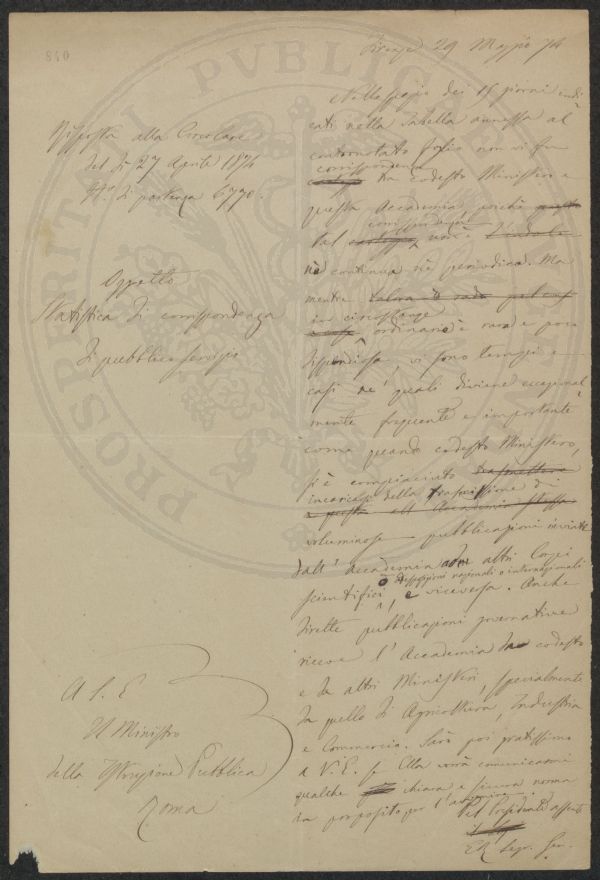 840
PROSPERITATI PUBLICAE
Firenze 29 Maggio 74
Risposta alla Circolare
del dì 27 Aprile 1874
N.º di partenza 6770.
Oggetto
Statistica di corrispondenza
di pubblico servizio
A S. E.
Il Ministro
della Istruzione Pubblica
Roma
Nello spazio dei 15 giorni indi
cati nella Tabella annessa al
contronotato foglio non vi fu
corrispondenza
tra codesto Ministero e
questa Accademia
corrispondenza
tal non è
nè continua nè periodica. Ma
mentre
in circostanze
ordinarie è rara e poco
dispendiosa, vi sono tempi e
casi ne' quali diviene eccezional
mente frequente e importante
come quando codesto Ministero,
si è compiaciuto trasmettere
incaricarsi della trasmissione di
a questa Accademia stessa
voluminose pubblicazioni inviate
dall' Accademia ad altri Corpi
o esposizioni nazionali o internazionali
scientifici, e viceversa. Anche
dirette pubblicazioni governative
riceve l'Accademia da codesto
e da altri Ministeri, specialmente
da quello di Agricoltura, Industria
e Commercio. Sarò poi gratissimo
a V. E. se Ella vorrà comunicarmi
qualche chiara e sicura norma
in proposito per l'
Pel Presidente assente
Il Segr. Gen.